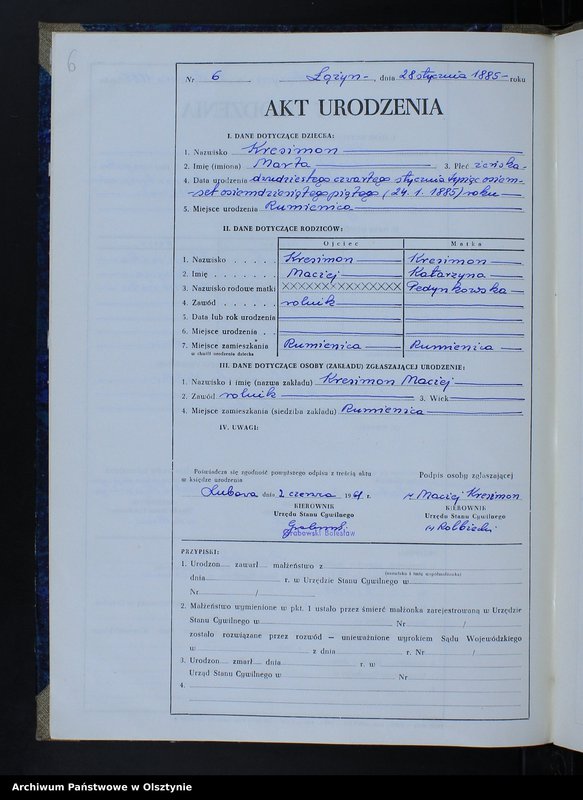 6
Nr 6 Łążyn, dnia 28 stycznia 1885 roku
AKT URODZENIA
I. DANE DOTYCZĄCE DZIECKA:
1. Nazwisko Kresimon
2. Imię (imiona) Marta 3. Płeć żeńska
4. Data urodzenia dwudziestego czwartego stycznia tysiąc osiem-
set osiemdziesiątego piątego (24. 1. 1885) roku
5. Miejsce urodzenia Rumienica
II. DANE DOTYCZĄCE RODZICÓW:
Ojciec Matka
1. Nazwisko Kresimon Kresimon
2. Imię Maciej Katarzyna
3. Nazwisko rodowe matki XXXXXXXXXXXXX Pedynkowska
4. Zawód rolnik
5. Data lub rok urodzenia
6. Miejsce urodzenia
7. Miejsce zamieszkania Rumienica Rumienica
w chwili urodzenia dziecka
III. DANE DOTYCZĄCE OSOBY (ZAKŁADU) ZGŁASZAJĄCEJ URODZENIE:
1. Nazwisko i imię (nazwa zakładu) Kresimon Maciej
2. Zawód rolnik 3. Wiek
4. Miejsce zamieszkania (siedziba zakładu) Rumienica
IV. UWAGI:
Poświadcza się zgodność powyższego odpisu z treścią aktu
w księdze urodzenia
Podpis osoby zgłaszającej
Lubawa dnia 2 czerwca 1961 r.
Maciej Kresimon
KIEROWNIK
Urzędu Stanu Cywilnego
KIEROWNIK
Urzędu Stanu Cywilnego
Grabowski Bolesław
PRZYPISKI:
1. Urodzon zawarł małżeństwo z
(nazwisko i imię współmałżonka)
dnia r. w Urzędzie Stanu Cywilnego w
Nr /
2. Małżeństwo wymienione w pkt. 1 ustało przez śmierć małżonka zarejestrowaną w Urzędzie
Stanu Cywilnego w Nr /
zostało rozwiązane przez rozwód — unieważnione wyrokiem Sądu Wojewódzkiego
w z dnia r. Nr /
3. Urodzon zmarł dnia r. w
Urząd Stanu Cywilnego w Nr
4.
Archiwum Państwowe w Olsztynie